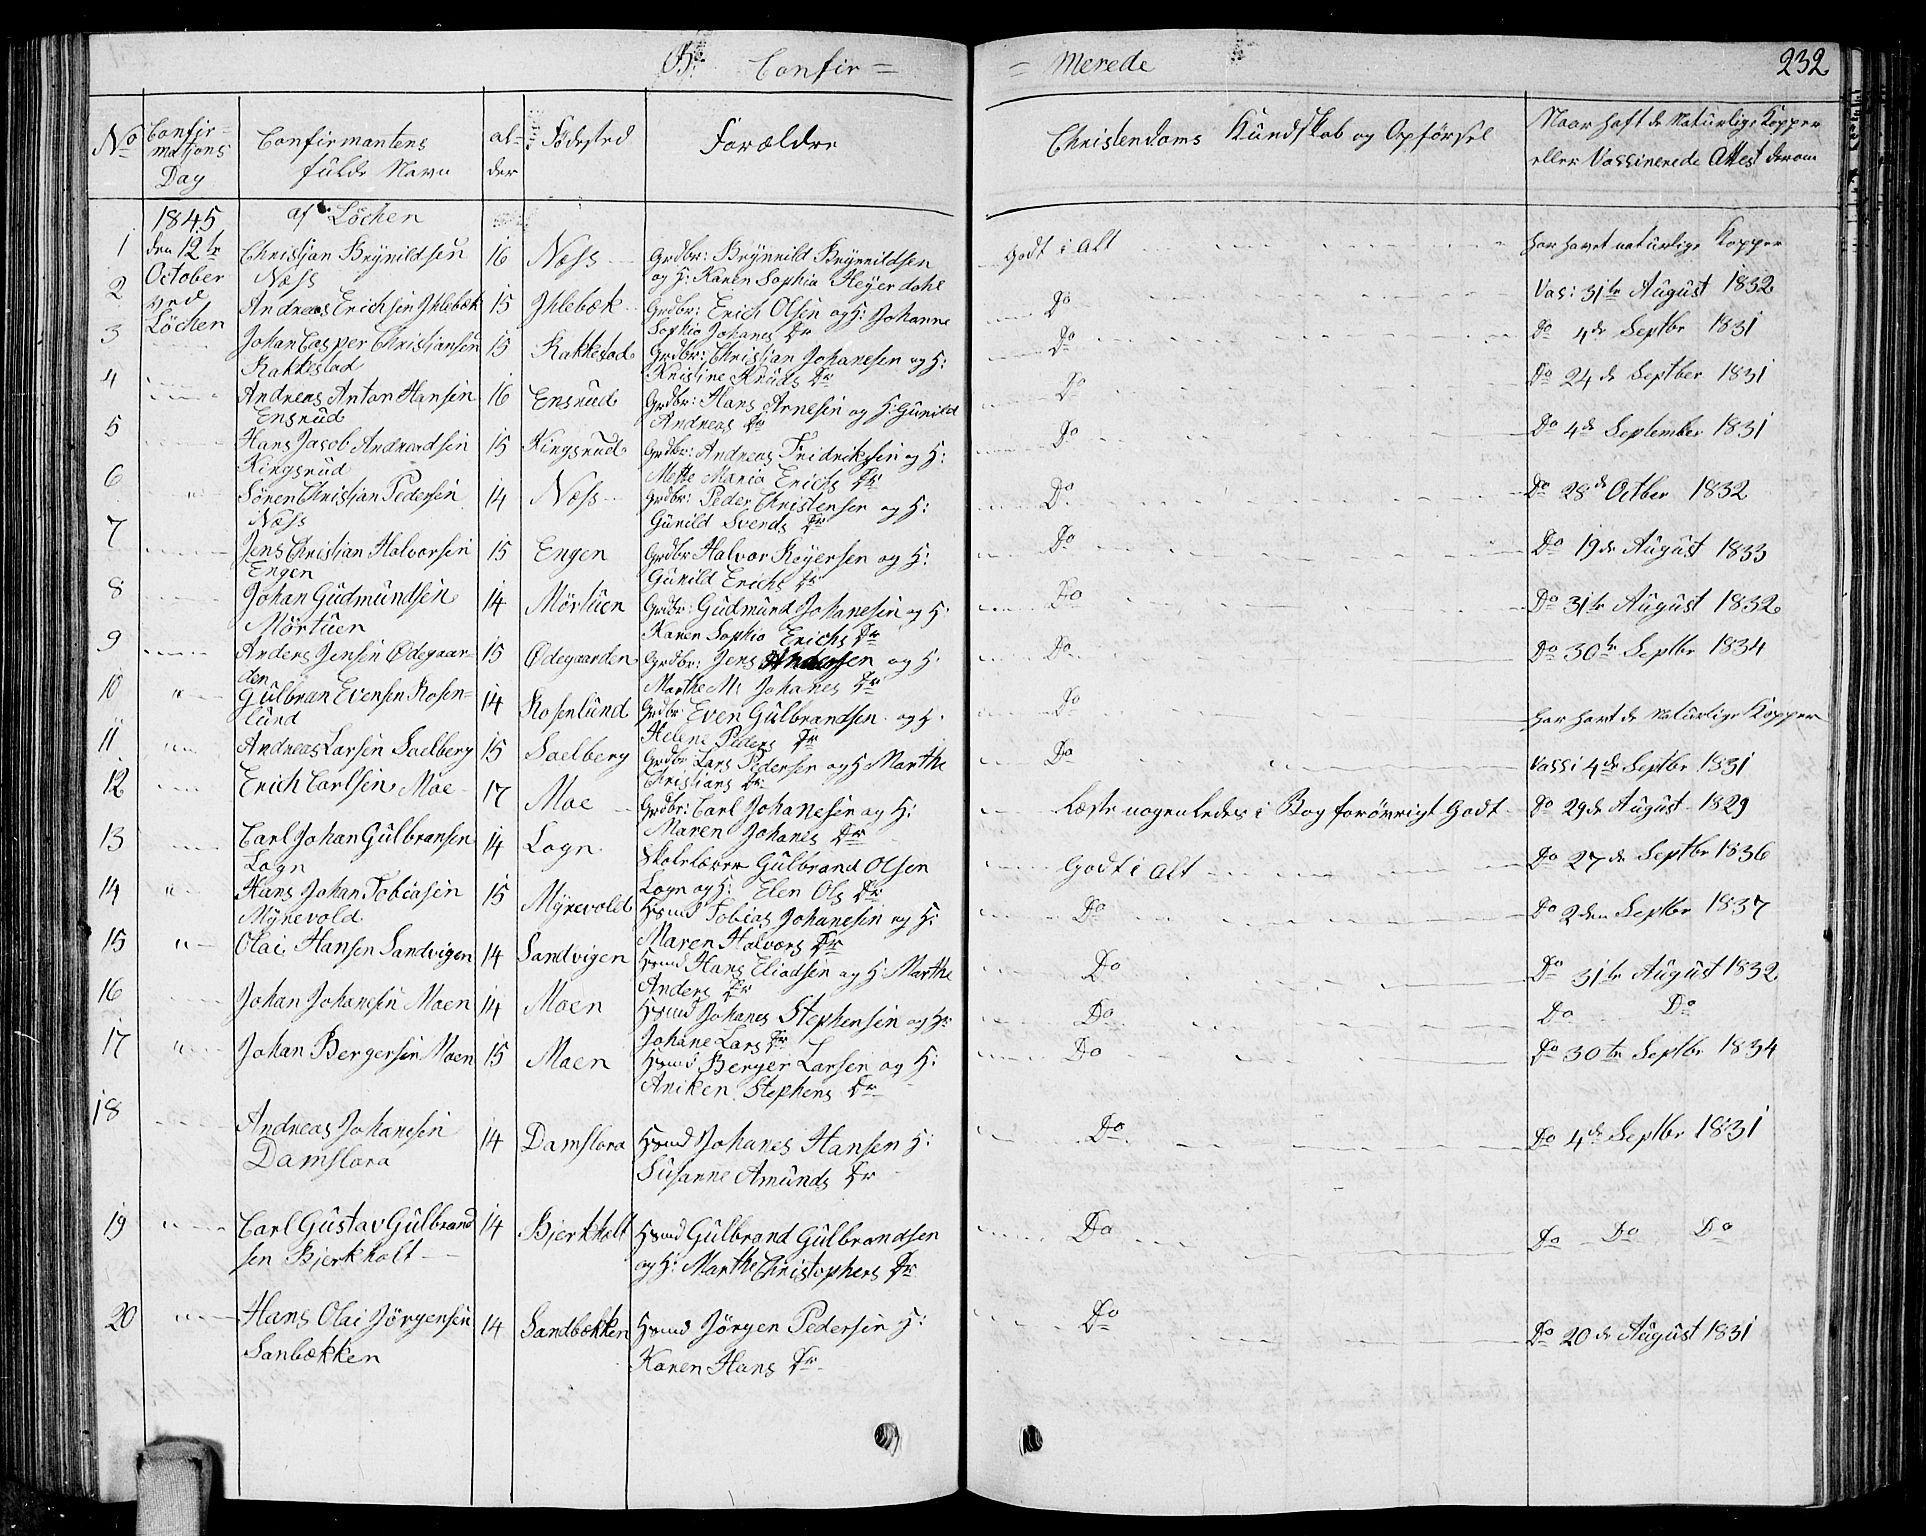 Confir = = Merede 232
No Confir= matjons Day | Confirmantens fulde Navn | al= der | Födested | Forældre | Christendoms Kundskab og Opförsel | Naar haft de Naturlige Kopper eller Vassinerede Attest derom
1845 af Löchen
den 12te October ved Löchen
1 Christjan Brynildsen Næss 16 Næss Grdbr: Brynnild Brynnildsen og H: Karen Sophia Heyerdahl Godt i alt har havet naturlige Kopper
2 Andreas Erichsen Ihlebæk 15 Ihlebæk Grdbr: Erich Olsen og H: Johanne Sophia Johanes Dr Do Vas: 31te August 1832
3 Johan Casper Christjansen Rakkestad 15 Rakkestad Grdbr: Christjan Johanesen og H: Kristine Knuds Dr Do Do 4de Septbr 1831
4 Andreas Anton Hansen Ensrud 16 Ensrud Grdbr: Hans Arnesen og H: Gunild Andreas Dr Do Do 24de Septber 1831
5 Hans Jacob Andreasen Kingsrud 15 Kingsrud Grdbr: Andreas Fridriksen og H: Mette Maria Erichs Dr Do Do 4de September 1831
6 Sören Christjan Pedersen Næss 14 Næss Grdbr: Peder Christensen og H: Gunild Svends Dr Do Do 28de Octber 1832
7 Jens Christian Halvorsen Engen 15 Engen Grdbr Halvor Reyersen og H: Gunild Erichs Dr Do Do 19de August 1833
8 Johan Gudmundsen Mörtuen 14 Mörtuen Grdbr: Gudmund Johanesen og H: Karen Sophia Erichs Dr Do Do 31te August 1832
9 Anders Jensen Ödegaar= den 15 Ödegaarden Grdbr: Jens Andersen og H: Marthe M: Johanes Dr Do Do 30te Septbr 1834
10 Gulbran Evensen Rosen= lund 14 Rosenlund Grdbr Even Gulbrandsen og H: Helene Peders Dr Do har havt de Naturlige Kopper
11 Andreas Larsen Saelberg 15 Saelberg Grdbr Lars Pedersen og H Marthe Christians Dr Do Vassi 4de Septbr 1831
12 Erich Carlsen Moe 17 Moe Grdbr: Carl Johanesen og H: Maren Johanes Dr Læste nogenledes i Bog forövrigt Godt Do 29de August 1829
13 Carl Johan Gulbransen Logn 14 Logn Skolelærer Gulbrand Olsen Logn og H: Elen Ols Dr Godt i alt Do 27de Septbr 1836
14 Hans Johan Tobiasen Myrevold 15 Myrevold Hsmd Tobias Johanesen og H: Maren Halvors Dr Do Do 2den Septbr 1837
15 Olai Hansen Sandvigen 14 Sandvigen Hsmd Hans Eliadsen og H: Marthe Anders Dr Do Do 31te August 1832
16 Johan Johanesen Moen 14 Moen Hsmd Johanes Stephensen og H: Johane Lars Dr Do Do Do
17 Johan Bergersen Moen 15 Moen Hsmd Berger Larsen og H: Aniken Stephens Dr Do Do 30te Septbr 1834
18 Andreas Johanesen Damslora 14 Damslora Hsmd Johanes Hansen H: Susanne Amunds Dr Do Do 4de Septbr 1831
19 Carl Gustav Gulbrand sen Bjerkholt 14 Bjerkholt Hsmd Gulbrand Gulbrandsen og H: Marthe Christophers Dr Do Do Do Do
20 Hans Olai Jörgensen Sanbækken 14 Sandbækken Hsmd Jörgen Pedersen H: Karen Hans Dr Do Do 20de August 1831